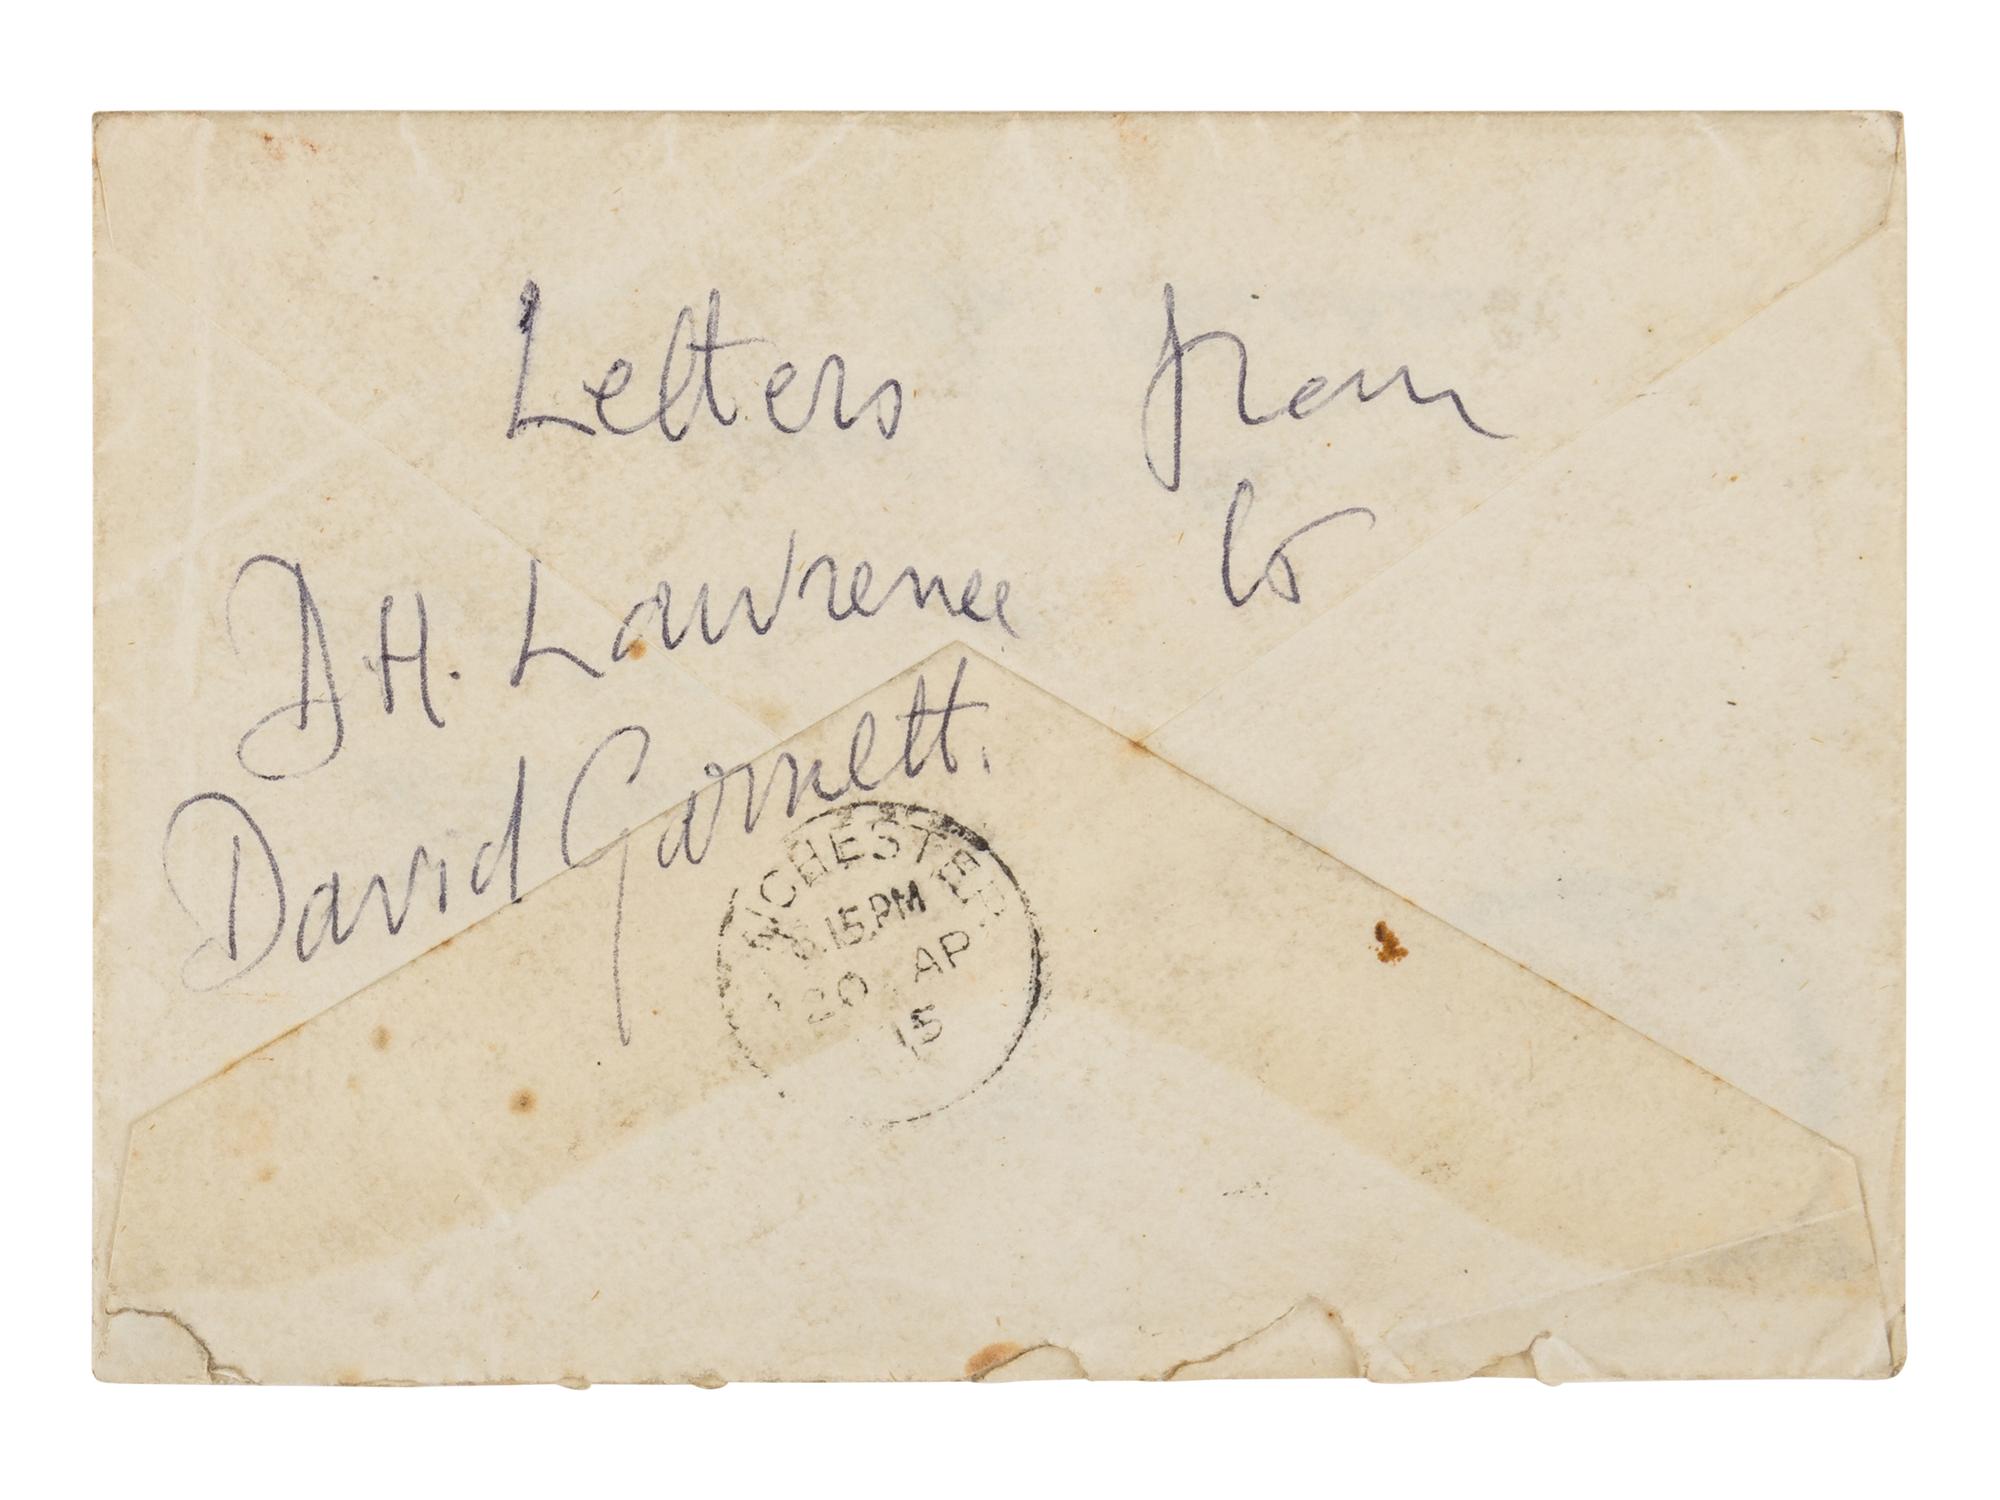 Letters from
to
D H. Lawrence
David Garnett.
CHESTER
.15 PM
20 AP
15